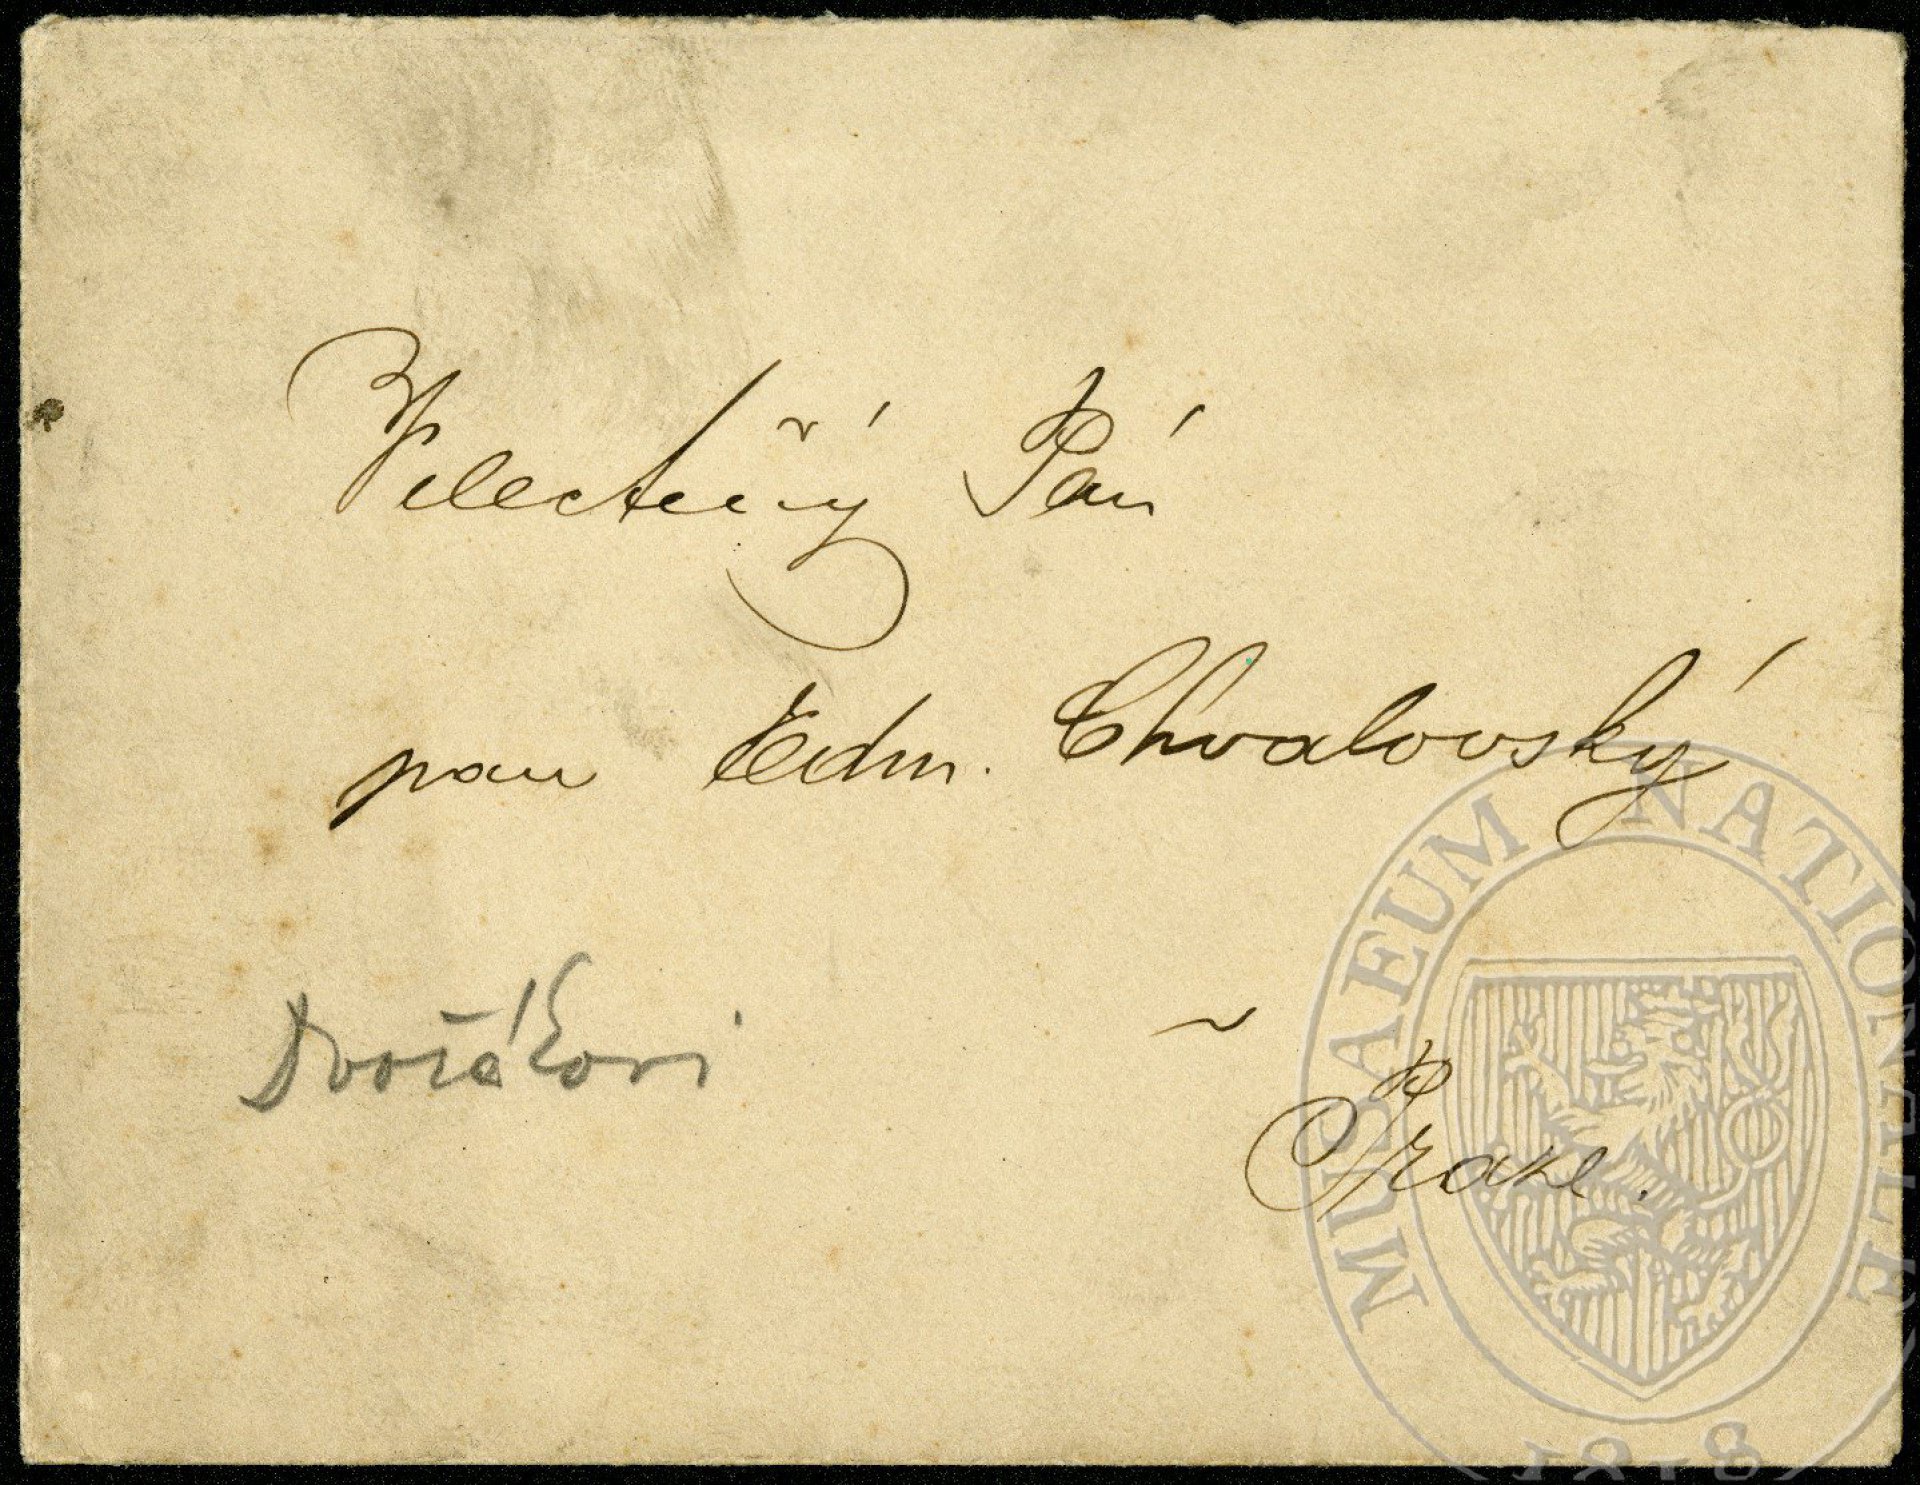 Velectěný Pán
pan Edm. Chvalovský
v
Praze.
Dvořákovi
MUSAEUM NATIONALE
1818